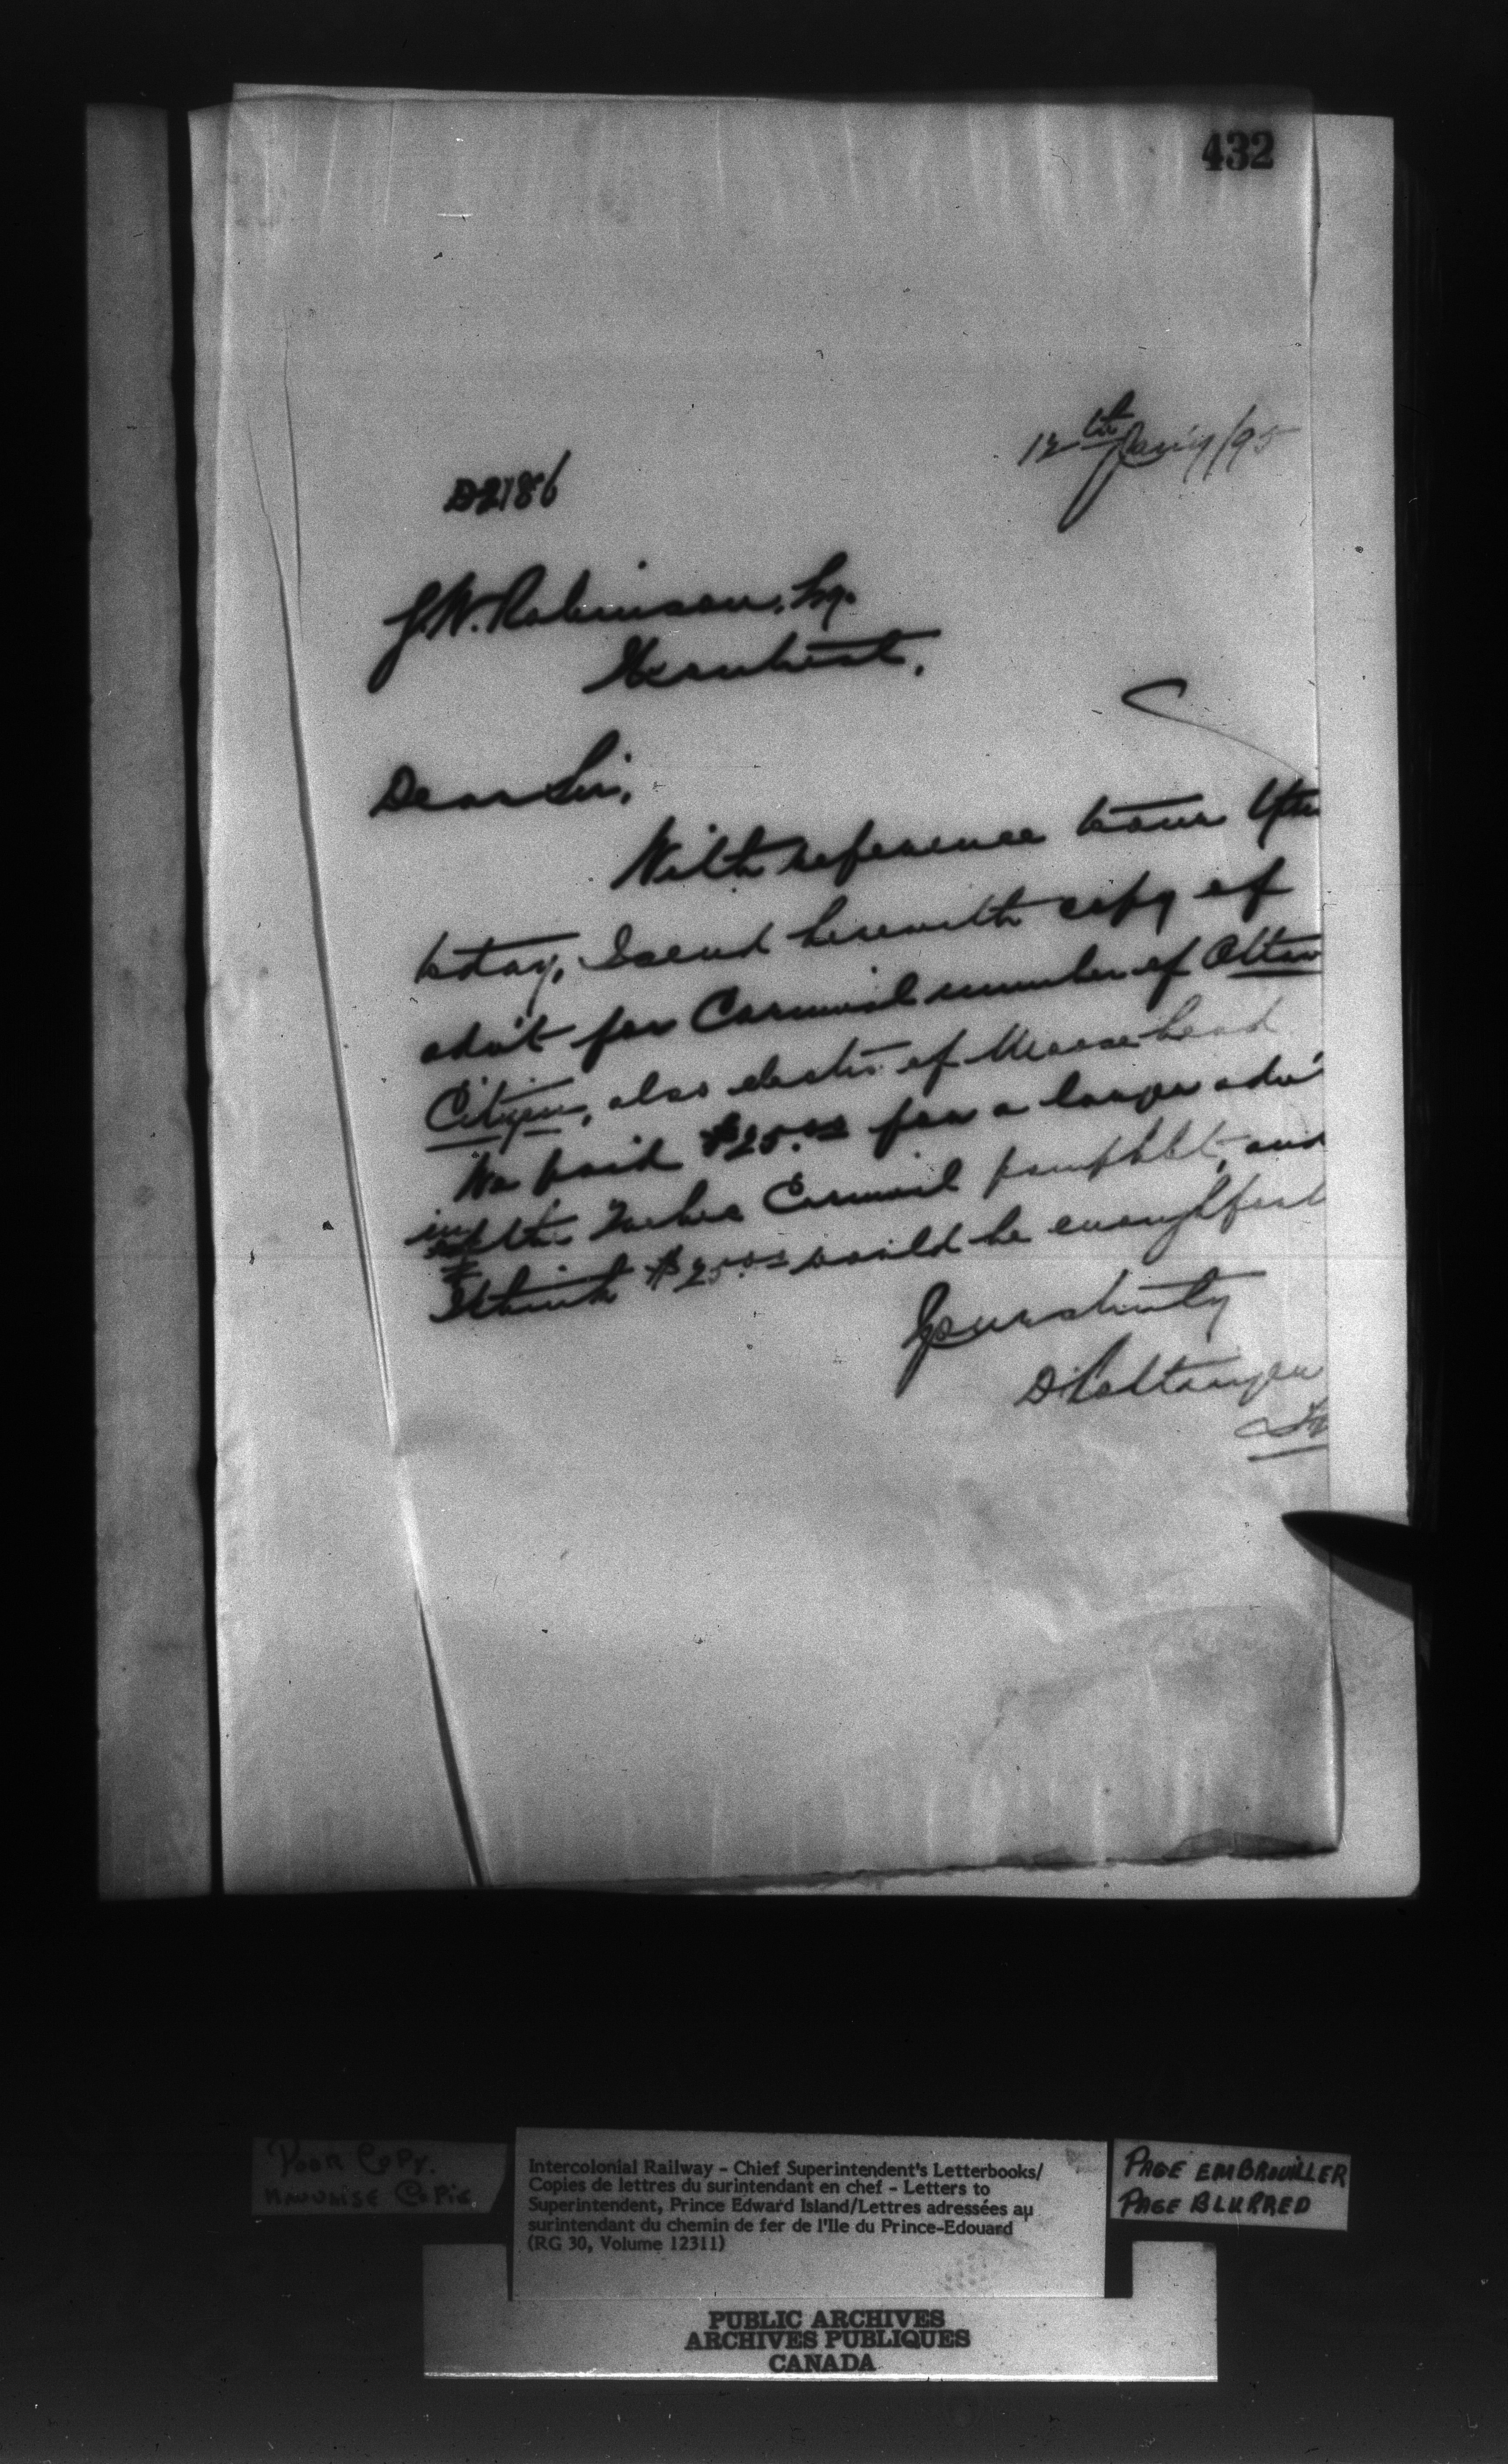 432
12th Jan'y/95
D2186
J.W. Robinson, Esq.
Dear Sir,
With reference to our
to day, I send herewith copy of
adv't for Carnival number of Ottaw
Citizen, also electro of Moose head
We paid $25.00 for a larger adv'
in the Quebec Carnival pamphlet, and
I think $25.00 would be enough for
Yours truly
D Pottinger
Poor Copy.
Mauvaise Copie
Intercolonial Railway - Chief Superintendent's Letterbooks/
Copies de lettres du surintendant en chef - Letters to
Superintendent, Prince Edward Island/Lettres adressées au
surintendant du chemin de fer de l'Ile du Prince-Edouard
(RG 30, Volume 12311)
PAGE EMBROUILLER
PAGE BLURRED
PUBLIC ARCHIVES
ARCHIVES PUBLIQUES
CANADA